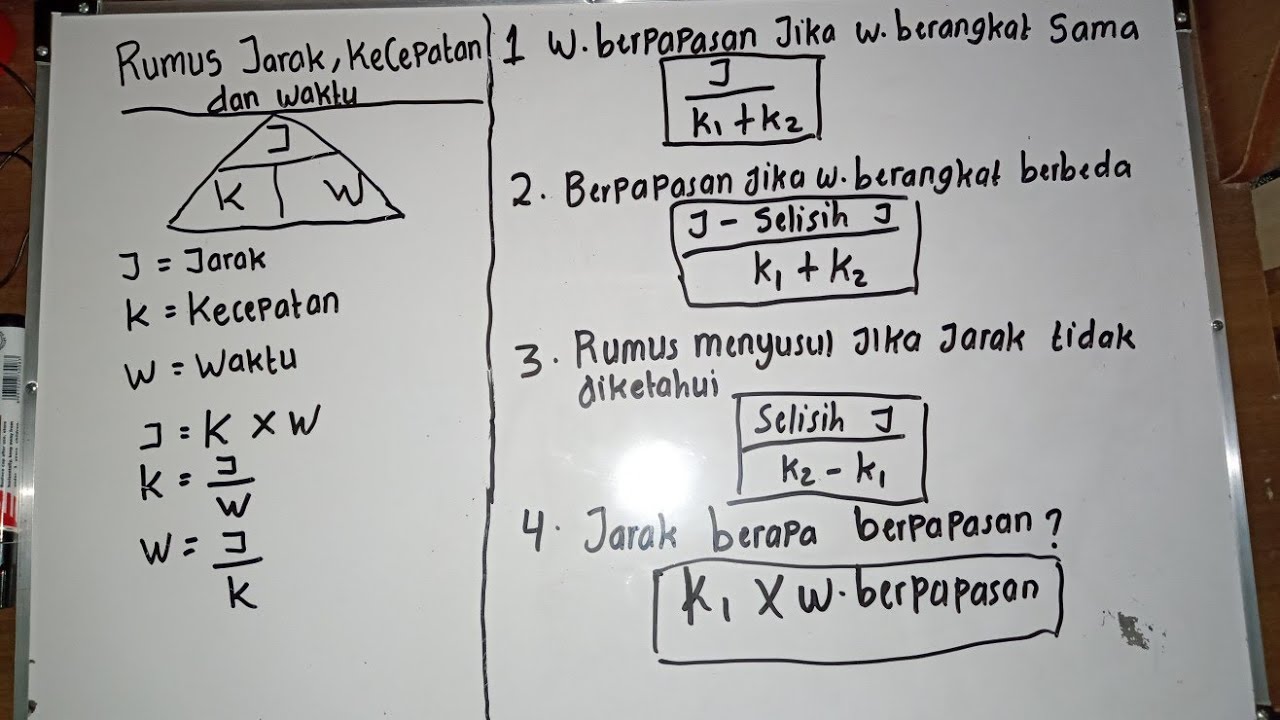 Rumus Jarak, Kecepatan
dan Waktu
J
K W
J = Jarak
K = Kecepatan
W = Waktu
J = K X W
K = J
W
W = J
K
1 W. berpapasan Jika w. berangkat Sama
J
K₁ + K₂
2. Berpapasan Jika w. berangkat berbeda
J - Selisih J
K₁ + K₂
3. Rumus menyusul Jika Jarak tidak
diketahui
Selisih J
K₂ - K₁
4. Jarak berapa berpapasan?
K₁ X W. berpapasan